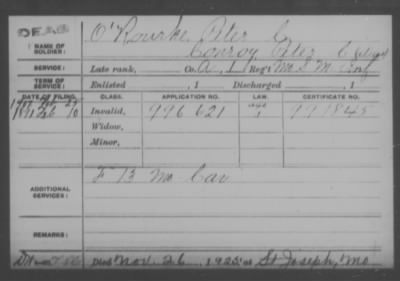 DEAD
NAME OF SOLDIER: O'Rourke Peter C.
Conroy Peter C alias
SERVICE: Late rank, Co. A, 1 Reg't Mo S. M. Cav
TERM OF SERVICE: Enlisted , 1 Discharged , 1
DATE OF FILING. CLASS. APPLICATION NO. LAW. CERTIFICATE NO.
1891 Feb 10 Invalid, 996621 997845
Widow,
Minor,
ADDITIONAL SERVICES: F 13 Mo Cav
REMARKS:
Died Nov. 26, 1925 at St Joseph, Mo